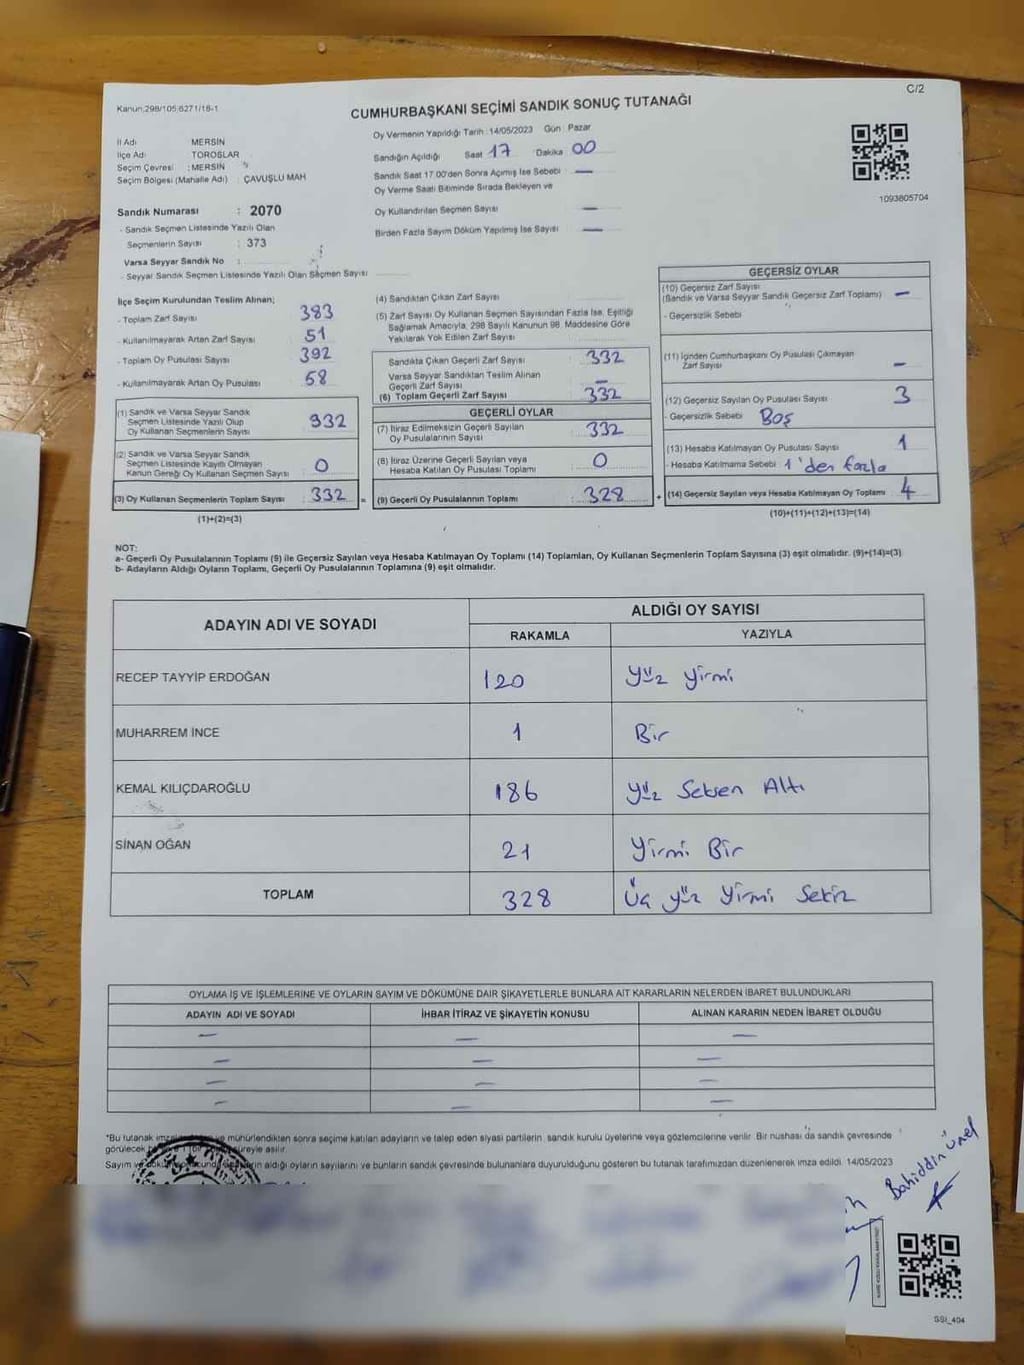 Kanun:298/105,6271/16-1
C/2
CUMHURBAŞKANI SEÇİMİ SANDIK SONUÇ TUTANAĞI
İl Adı MERSİN
İlçe Adı TOROSLAR
Seçim Çevresi : MERSİN
Seçim Bölgesi (Mahalle Adı) : ÇAVUŞLU MAH
Sandık Numarası : 2070
- Sandık Seçmen Listesinde Yazılı Olan
Seçmenlerin Sayısı : 373
Varsa Seyyar Sandık No :
- Seyyar Sandık Seçmen Listesinde Yazılı Olan Seçmen Sayısı
Oy Vermenin Yapıldığı Tarih : 14/05/2023 Gün : Pazar
Sandığın Açıldığı Saat 17 Dakika 00
Sandık Saat 17.00'den Sonra Açımış İse Sebebi —
Oy Verme Saati Bitiminde Sırada Bekleyen ve
Oy Kullandırılan Seçmen Sayısı —
Birden Fazla Sayım Döküm Yapılmış İse Sayısı —
1093805704
İlçe Seçim Kurulundan Teslim Alınan;
- Toplam Zarf Sayısı 383
- Kullanılmayarak Artan Zarf Sayısı 51
- Toplam Oy Pusulası Sayısı 392
- Kullanılmayarak Artan Oy Pusulası 58
(1) Sandık ve Varsa Seyyar Sandık
Seçmen Listesinde Yazılı Olup
Oy Kullanan Seçmenlerin Sayısı 332
(2) Sandık ve Varsa Seyyar Sandık
Seçmen Listesinde Kayıtlı Olmayan
Kanun Gereği Oy Kullanan Seçmen Sayısı 0
(3) Oy Kullanan Seçmenlerin Toplam Sayısı 332 =
(1)+(2)=(3)
(4) Sandıktan Çıkan Zarf Sayısı
(5) Zarf Sayısı Oy Kullanan Seçmen Sayısından Fazla İse, Eşitliği
Sağlamak Amacıyla, 298 Sayılı Kanunun 98. Maddesine Göre
Yakılarak Yok Edilen Zarf Sayısı
Sandıkta Çıkan Geçerli Zarf Sayısı 332
Varsa Seyyar Sandıktan Teslim Alınan
Geçerli Zarf Sayısı —
(6) Toplam Geçerli Zarf Sayısı 332
GEÇERLİ OYLAR
(7) İtiraz Edilmeksizin Geçerli Sayılan
Oy Pusulalarının Sayısı 332
(8) İtiraz Üzerine Geçerli Sayılan veya
Hesaba Katılan Oy Pusulası Toplamı 0
(9) Geçerli Oy Pusulalarının Toplamı : 328 +
GEÇERSİZ OYLAR
(10) Geçersiz Zarf Sayısı
(Sandık ve Varsa Seyyar Sandık Geçersiz Zarf Toplamı) —
- Geçersizlik Sebebi
(11) İçinden Cumhurbaşkanı Oy Pusulası Çıkmayan
Zarf Sayısı —
(12) Geçersiz Sayılan Oy Pusulası Sayısı 3
- Geçersizlik Sebebi Boş
(13) Hesaba Katılmayan Oy Pusulası Sayısı 1
- Hesaba Katılmama Sebebi 1'den fazla
(14) Geçersiz Sayılan veya Hesaba Katılmayan Oy Toplamı 4
(10)+(11)+(12)+(13)=(14)
NOT:
a- Geçerli Oy Pusulalarının Toplamı (9) ile Geçersiz Sayılan veya Hesaba Katılmayan Oy Toplamı (14) Toplamları, Oy Kullanan Seçmenlerin Toplam Sayısına (3) eşit olmalıdır. (9)+(14)=(3)
b- Adayların Aldığı Oyların Toplamı, Geçerli Oy Pusulalarının Toplamına (9) eşit olmalıdır.
ADAYIN ADI VE SOYADI
ALDIĞI OY SAYISI
RAKAMLA YAZIYLA
RECEP TAYYİP ERDOĞAN 120 Yüz Yirmi
MUHARREM İNCE 1 Bir
KEMAL KILIÇDAROĞLU 186 Yüz Seksen Altı
SİNAN OĞAN 21 Yirmi Bir
TOPLAM 328 Üç yüz Yirmi Sekiz
OYLAMA İŞ VE İŞLEMLERİNE VE OYLARIN SAYIM VE DÖKÜMÜNE DAİR ŞİKAYETLERLE BUNLARA AİT KARARLARIN NELERDEN İBARET BULUNDUKLARI
ADAYIN ADI VE SOYADI İHBAR İTİRAZ VE ŞİKAYETİN KONUSU ALINAN KARARIN NEDEN İBARET OLDUĞU
— — —
— — —
— — —
— — —
*Bu tutanak ve mühürlendikten sonra seçime katılan adayların ve talep eden siyasi partilerin, sandık kurulu üyelerine veya gözlemcilerine verilir. Bir nushası da sandık çevresinde
görülecek süreyle asılır.
Sayım ve aldığı oyların sayılarını ve bunların sandık çevresinde bulunanlara duyurulduğunu gösteren bu tutanak tarafımızdan düzenlenerek imza edildi. 14/05/2023
Bahiddin Ünel
SSI_404